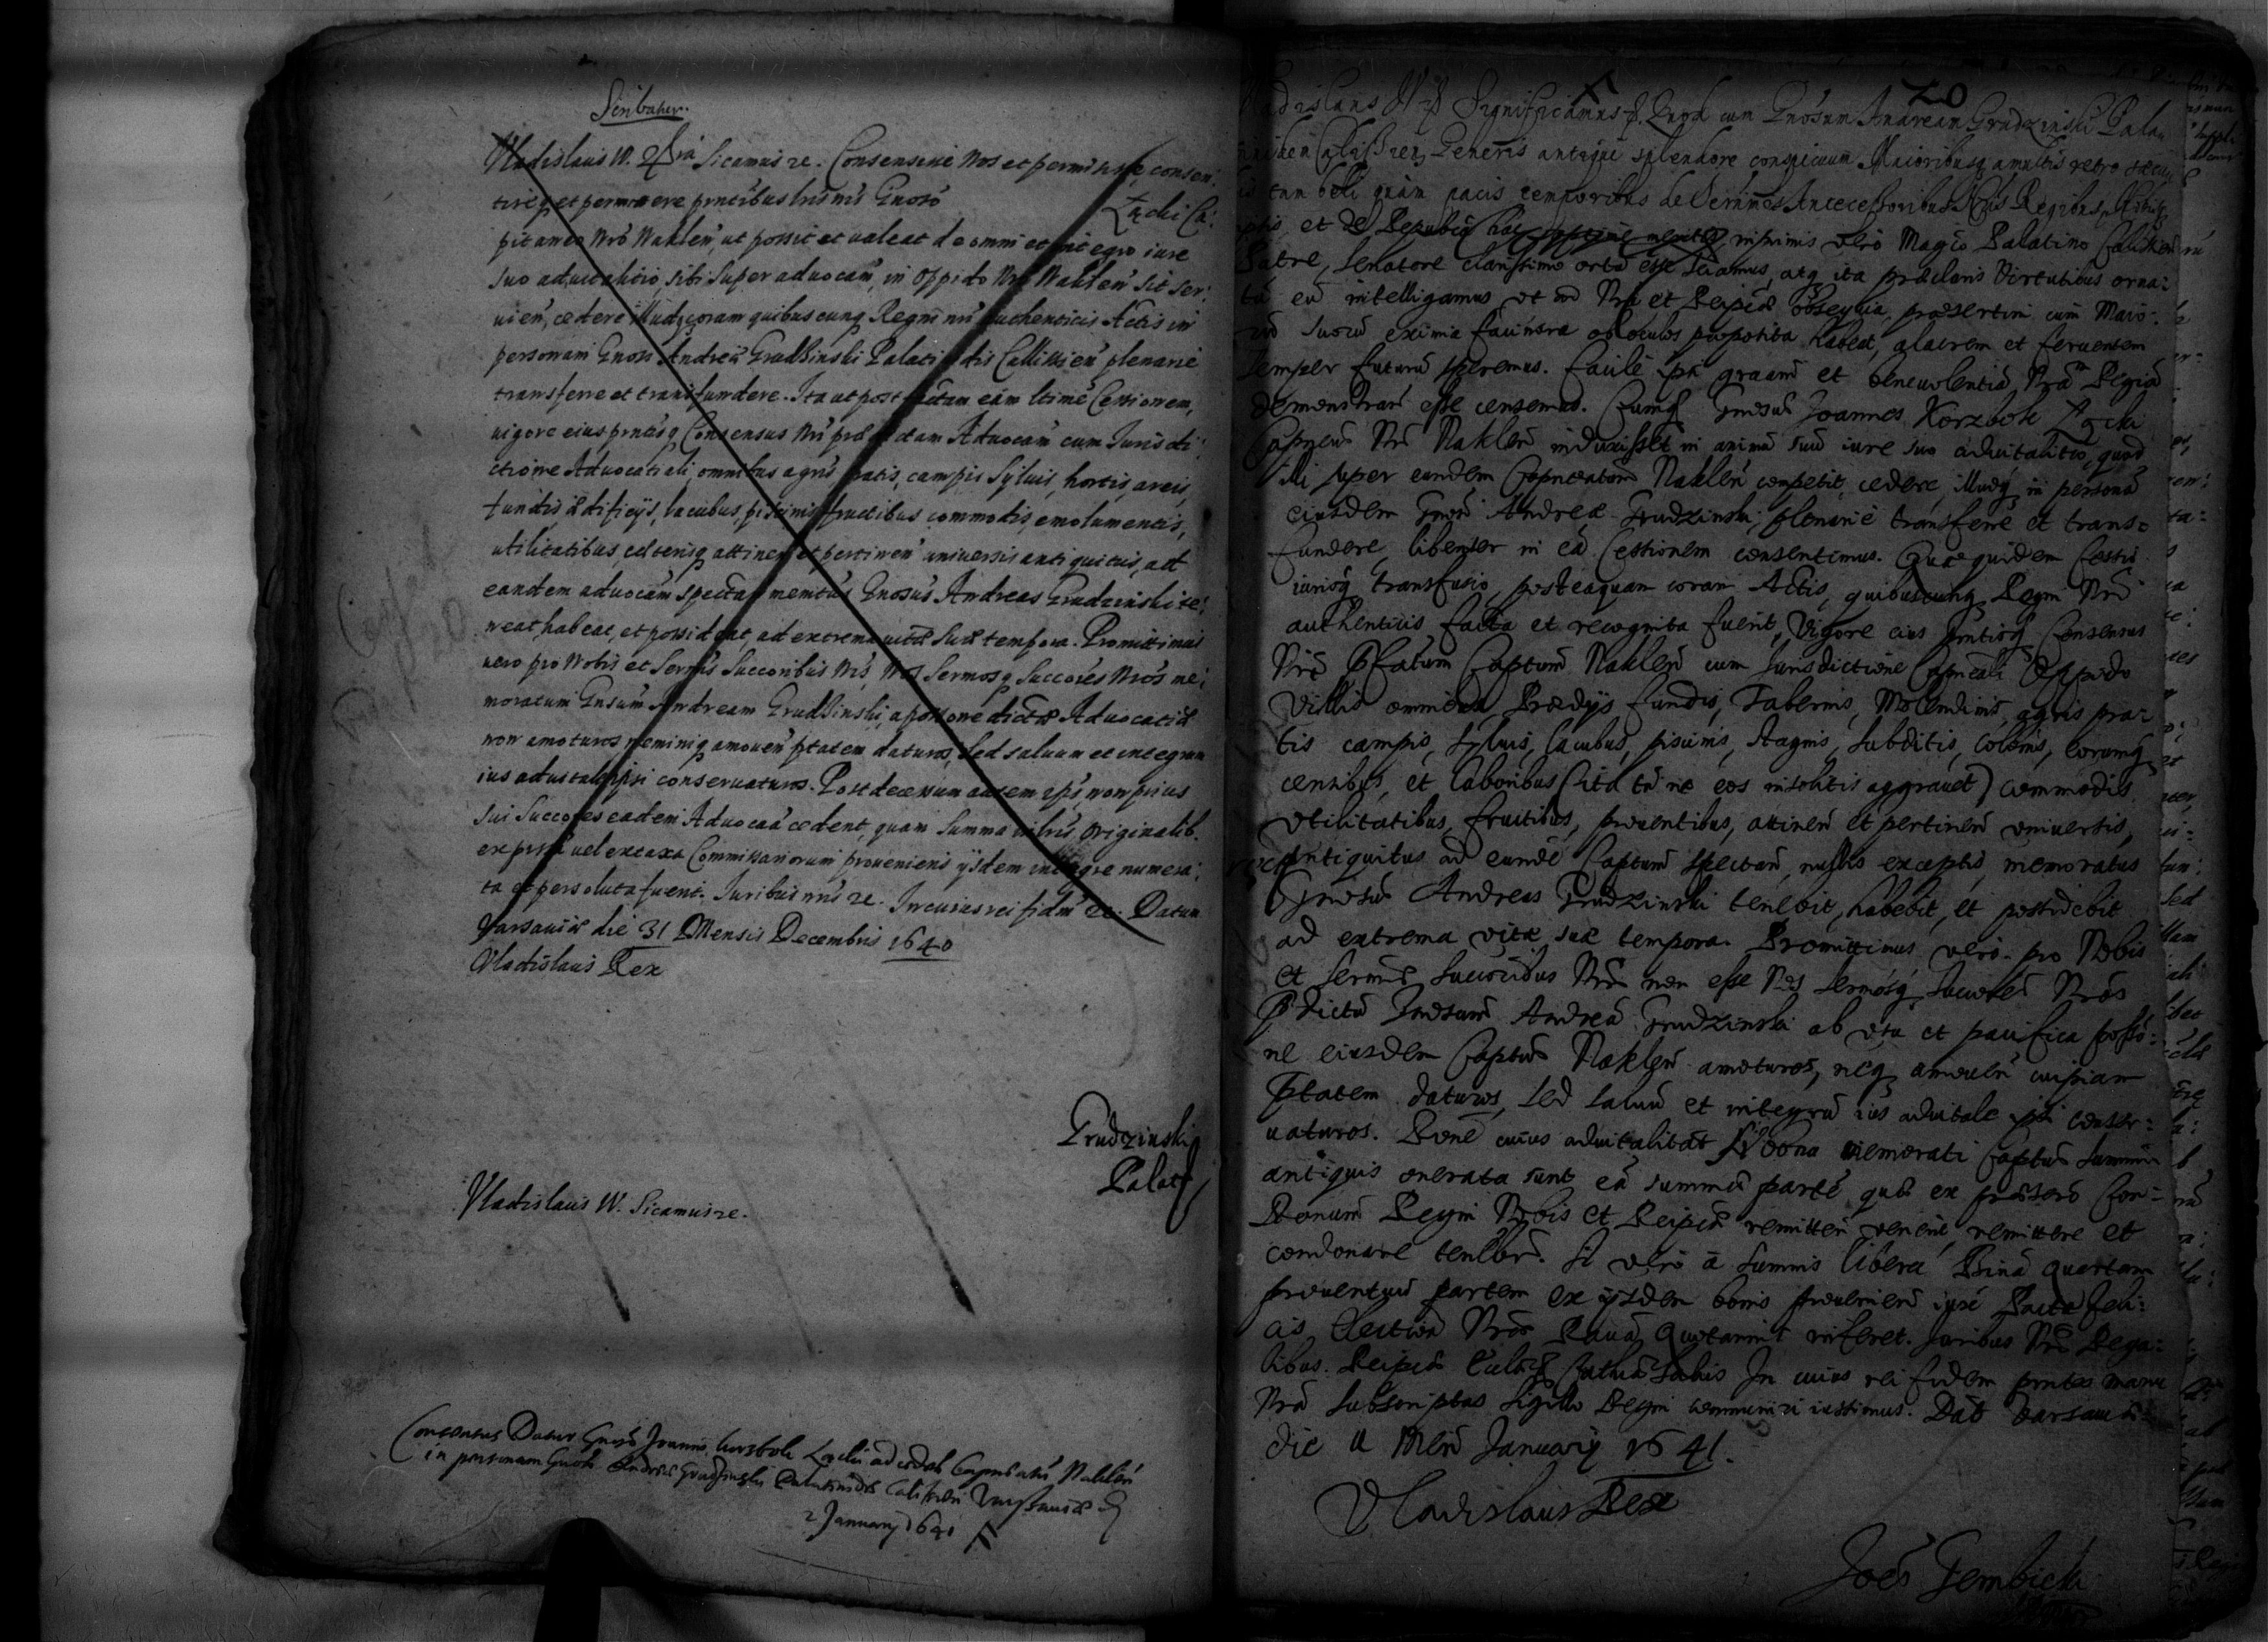 Scribatur.
Vladislaus IV. Sicamus re. Consensisse Nos et permisisse consen:
tireq et permittere pntibus lris nris Gnoso
Łącki Ca:
pitaneo Nro Naklen, ut possit et valeat de omni et integro iure
suo advitalitio, sibi super advocam, in Oppido Nro Naklen sit ser:
vien, cedere illudq coram quibuscunq Regni nri authenticis Actis in
personam Gnosi Andreae Grudzinski Palatinidis Callissien plenarie
transferre et transfundere. Ita ut post factam eam ltime Cessionem,
vigore eius pntisq Consensus Nri praefatam Advocam cum Jurisdi:
ctione Advocatiali, omnibus agris pratis, campis sylvis, hortis, areis,
fundis aedificijs, lacubus, piscinis fructibus commodis, emolumentis,
utilitatibus, ceterisq attinen et pertinen universis antiquitus, ad
eandem advocam spectan memtus Gnosus Andreas Grudzinski te:
neat, habeat, et possideat, ad extrema vitae suae tempora. Promittimus
vero pro Nobis et Sermis Succoribus Nris, Nos Sermosq Succores Nros me:
moratum Gnsum Andream Grudzinski, a possone dictae Advocatiae
non amoturos neminiq amoven ptatem daturos, sed salvum et integrum
ius advitale ipsi conservaturos. Post decessum autem ipsius, non prius
sui Succores eadem Advocaa cedent, quam summa in lris originalib.
expressa vel ex taxa Commissariorum proveniens ijsdem integre numera:
ta et persoluta fuerit. Juribus nris re. In cuius rei fidem re. Datum
Varsaviae die 31 Mensis Decembris 1640
Vladislaus Rex
Grudzinski
Palat
Vladislaus IV. Sicamus re.
Consensus Datur Gnoso Joanni Korzbok Łącki ad cedend Capneatu Naklen
in personam Gnosi Andreae Grudzinski Palatinidis Calissien Varsaviae d
2 January 1641
20
Vladislaus IV Significamus Quod cum Gnosum Andream Grudzinski Pala
tinidem Calissien, Generis antiqui splendore conspicuum Maioribusq a multis retro saecu
lis tam beli quam pacis temporibus de Serinmis Antecessoribus Nris Regibus
et de Republica hac optime meritis, inprimis vero Magco Palatino Calissien
Patre, Senatore clarissimo ortu esse sciamus, atq ita praeclaris virtutibus orna:
tu eu intelligamus ut ad Nra et Reipcae obsequia, praesertim cum Maio:
ru suoru eximia facinora ob oculos proposita habeat, alacrem et ferventem
semper futuru speremus. Facile ipsi graam et benevolentia Nram Regia
demonstrari esse censemus. Cumq Gnosus Joannes Korzbok Łącki
Capneus Nr Naklen induxisset in animu suu iure suo advitalitio, quod
illi super eundem Capneatum Naklen competit, cedere, illudq in persona
eiusdem Gnosi Andreae Grudzinski, plenarie transferre et trans:
fundere, libenter in ea Cessionem consentimus. Quae quidem Cessio
iurisq transfusio, posteaquam coram Actis, quibuscunq Regni Nri
authenticis facta et recognita fuerit, Vigore eius pntisq Consensus
Nri Pfatum Captum Naklen cum Jurisdictione Capneali Oppido
Villis omnibus Praedijs fundis, Tabernis, Molendinis, agris pra:
tis campis, sylvis, lacubus, piscinis, stagnis, subditis, colonis, eorumq
censibus, et laboribus (ita tn ne eos insolitis aggravet) commodis
utilitatibus, fructibus, proventibus, attinen et pertinen universis,
antiquitus ad eunde Captum spectan, nullis exceptis, memoratus
Gnosus Andreas Grudzinski tenebit, habebit, et possidebit
ad extrema vitae suae tempora. Promittimus vero pro Nobis
et Sermis Succoribus Nris non esse Nos Sermosq Succores Nros
Pdictu Gnosum Andrea Grudzinski ab usu et pacifica posso:
ne eiusdem Captus Naklen amoturos, neq amoven cuipiam
Ptatem daturos, sed salvu et integru ius advitale ipsi conser:
vaturos. Rone cuius advitalitat si bona memorati Captus summis
antiquis onerata sunt ea summae parte, quae ex praescro Con:
stonum Regni Nobis et Reipcae remitten venerit, remittere et
condonare tenebr. Si vero a summis libera Bina quartam
proventuu partem ex ijsdem bonis provenien iuxe Pacta feli:
cis Electio Nrae Rava quotannis inferet. Juribus Nris Rega:
libus. Reipcae Eccles Catholcae salvis In cuius rei fidem pntes manu
Nra subscriptas sigillo Regni communiri iussimus. Dat Varsaviae
die II Men January 1641.
Vladislaus Rex
Joes Gembicki